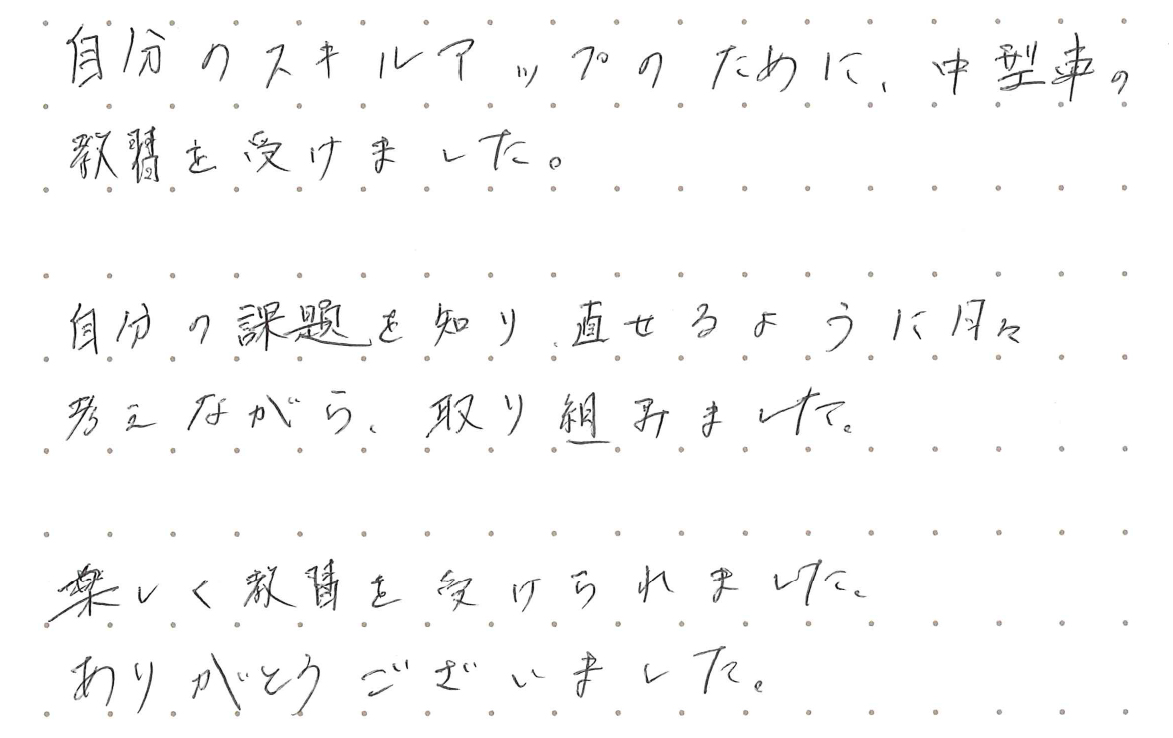 自分のスキルアップのために、中型車の
教習を受けました。
自分の課題を知り、直せるように日々
考えながら、取り組みました。
楽しく教習を受けられました。
ありがとうございました。